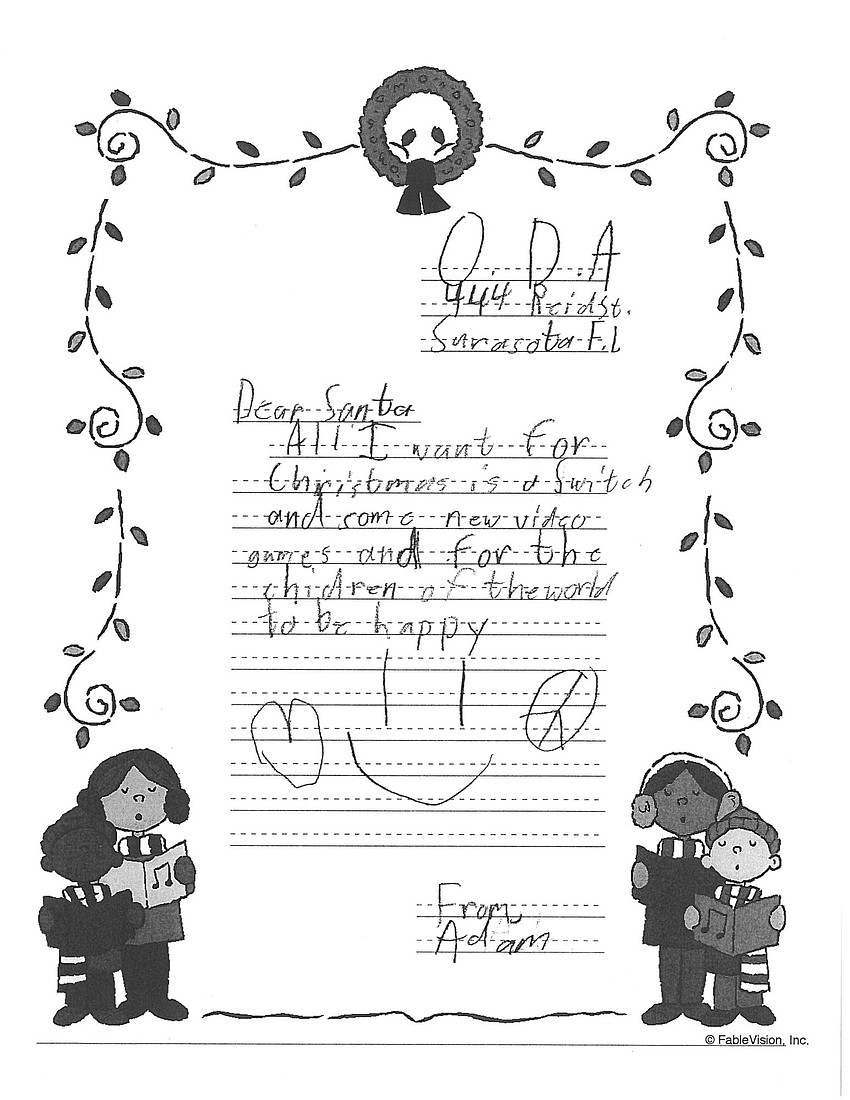 O.D.A
444 Reid St.
Surasota F.L
Dear Santa
All I want for
Christmas is a Switch
and some new video
games and for the
children of the world
to be happy
From
Adam
© FableVision, Inc.